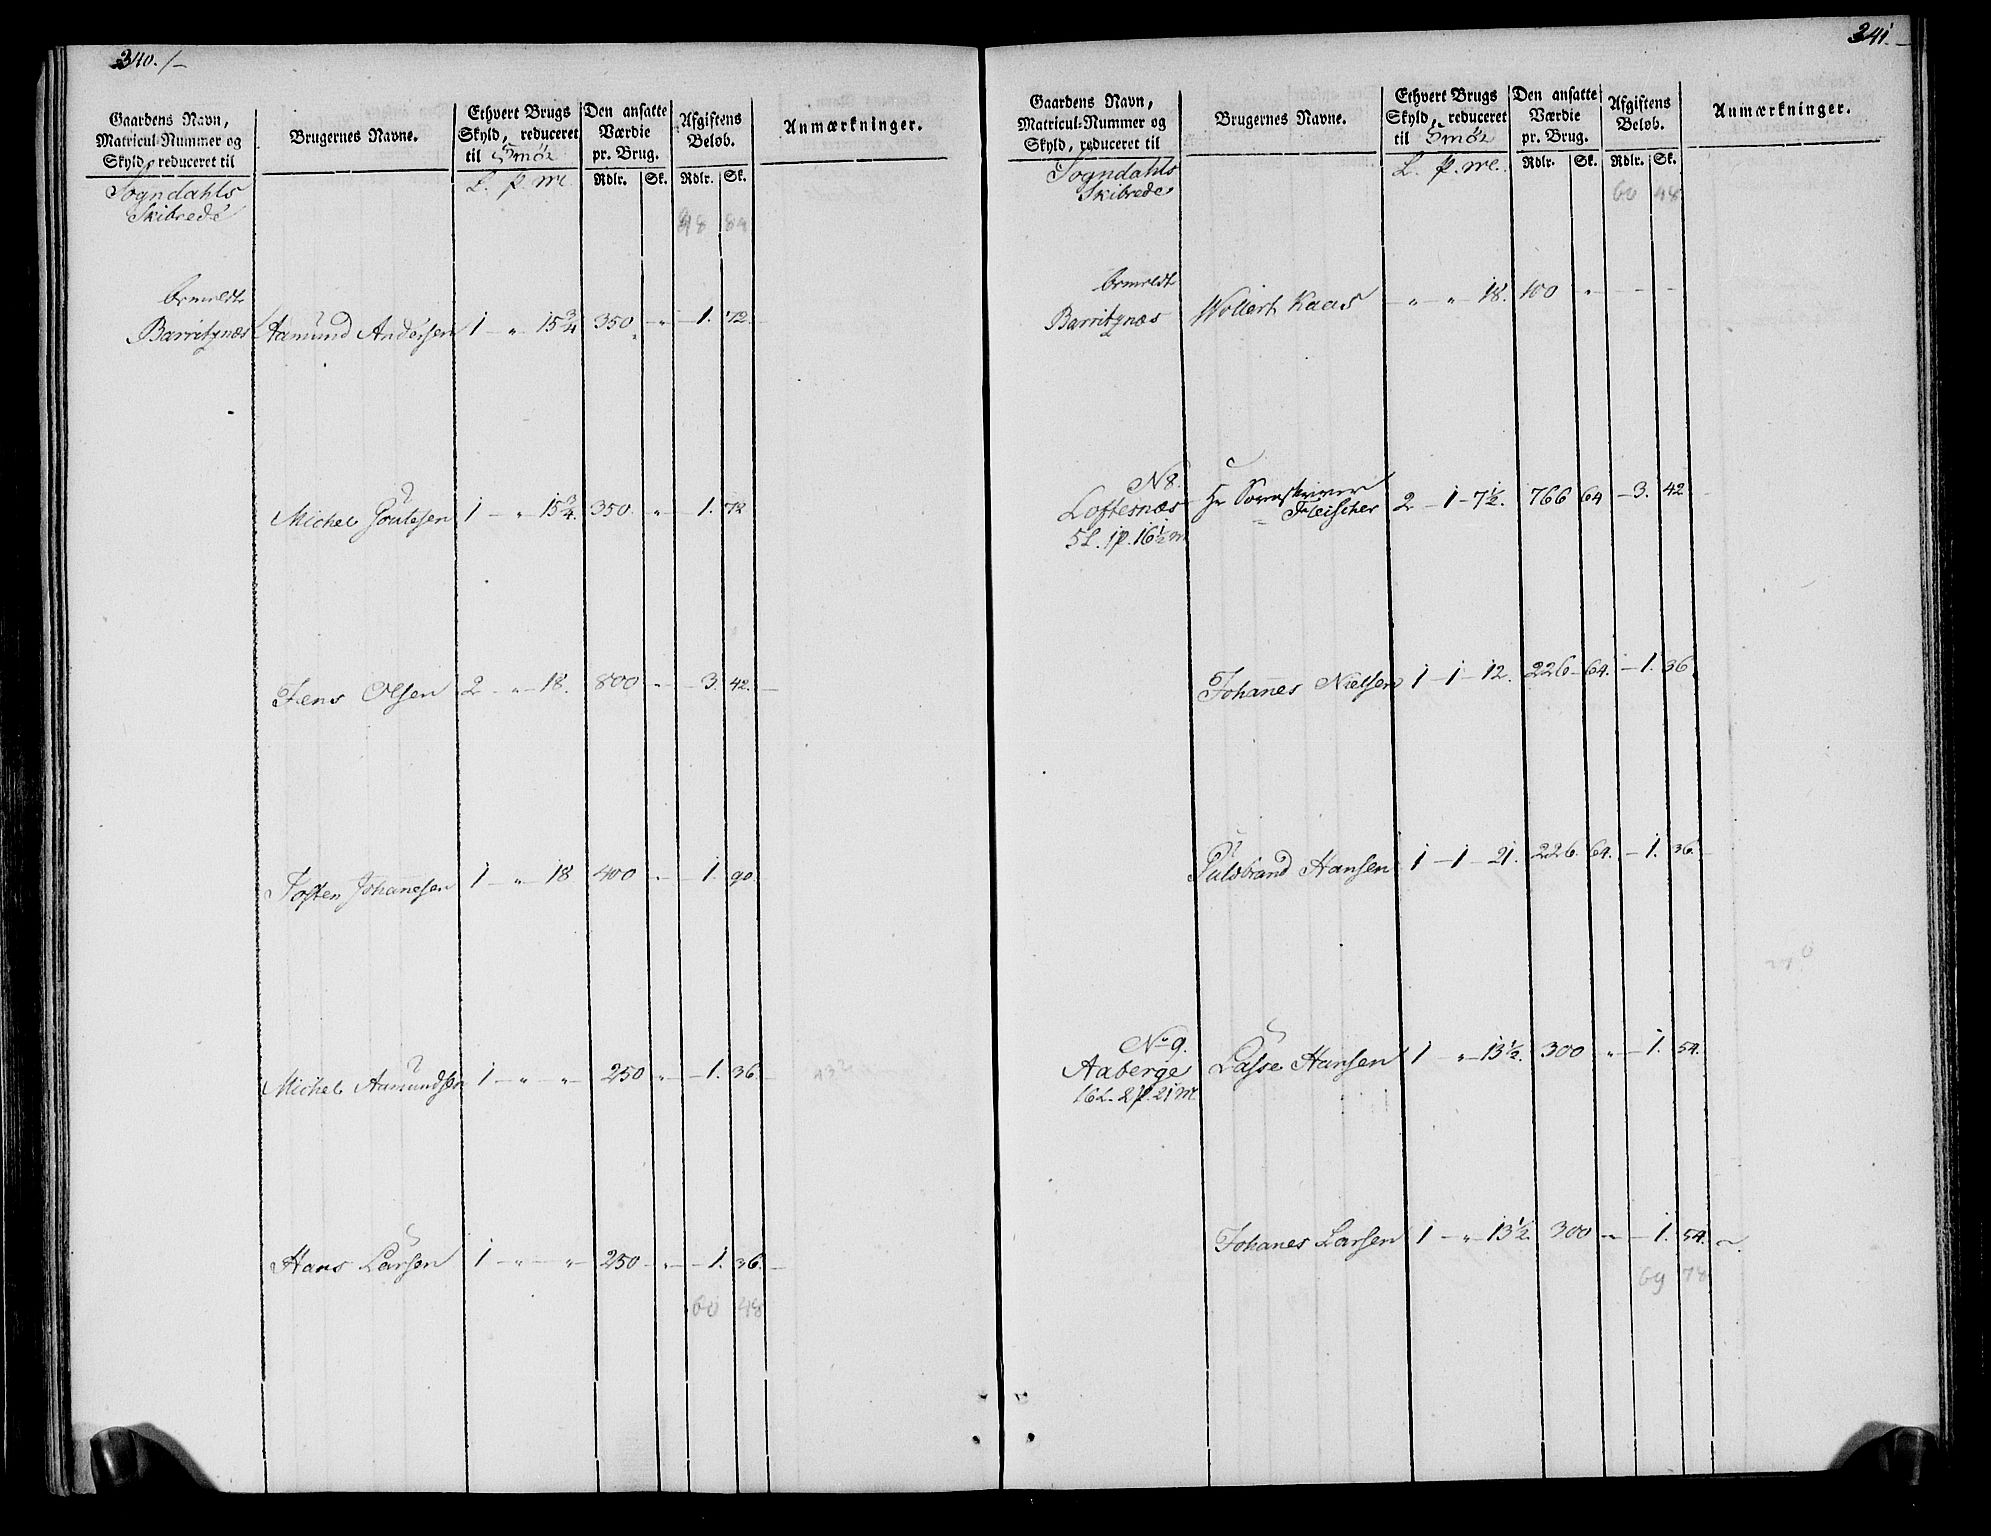 340. /-
Gaardens Navn, Matricul-Nummer og Skyld, reduceret til
Brugernes Navne.
Ethvert Brugs Skyld, reduceret til Smør
Den ansatte Værdie pr. Brug.
Afgiftens Beløb.
Anmærkninger.
L. p. mc. Rdlr. Sk. Rdlr. Sk.
Sogndahls
Skibrede
48 84
bemeldte
Barritznæs Aamund Andersen 1 - " 15 3/4 350 - " - 1. 72 -
Michel 1 - " 15 3/4. 350. " - 1. 72
Jens Olsen 2 - " - 18. 800 " - 3. 42. -
Torsten Johannesen 1 - " - 18 400 " - 1. 90.
Michel Aamundsen 1 - " - " - 250 " - 1. 36. -
Hans Larsen 1 - " - " - 250 - " - 1. 36. -
60 48
341. -
Gaardens Navn, Matricul-Nummer og Skyld, reduceret til
Brugernes Navne.
Ethvert Brugs Skyld, reduceret til Smør
Den ansatte Værdie pr. Brug.
Afgiftens Beløb.
Anmærkninger.
L. p. mc. Rdlr. Sk. Rdlr. Sk.
Sogndahls
Skibrede
60 48
bemeldte
Barritznæs Wollert Kaas - " " - 18. 100 " - - -
N 8.
Loftesnæs Hr Sorenskriver
Fleischer 2 - 1 - 7 1/2. 766 64 - 3. 42
5 L. 1 p. 16 1/2 m
Johanes Nielsen 1 - 1 - 12. 226 - 64. - 1. 36.
Guldbrand Hansen 1 - 1 - 21. 226. 64. - 1. 36. -
No 9.
Aaberge Lasse Hansen 1 - " - 13 1/2. 300 " - 1. 54.
16 L. 2 p. 21 m.
Johanes Larsen 1 - " - 13 1/2 300 " - 1. 54. -
69 78